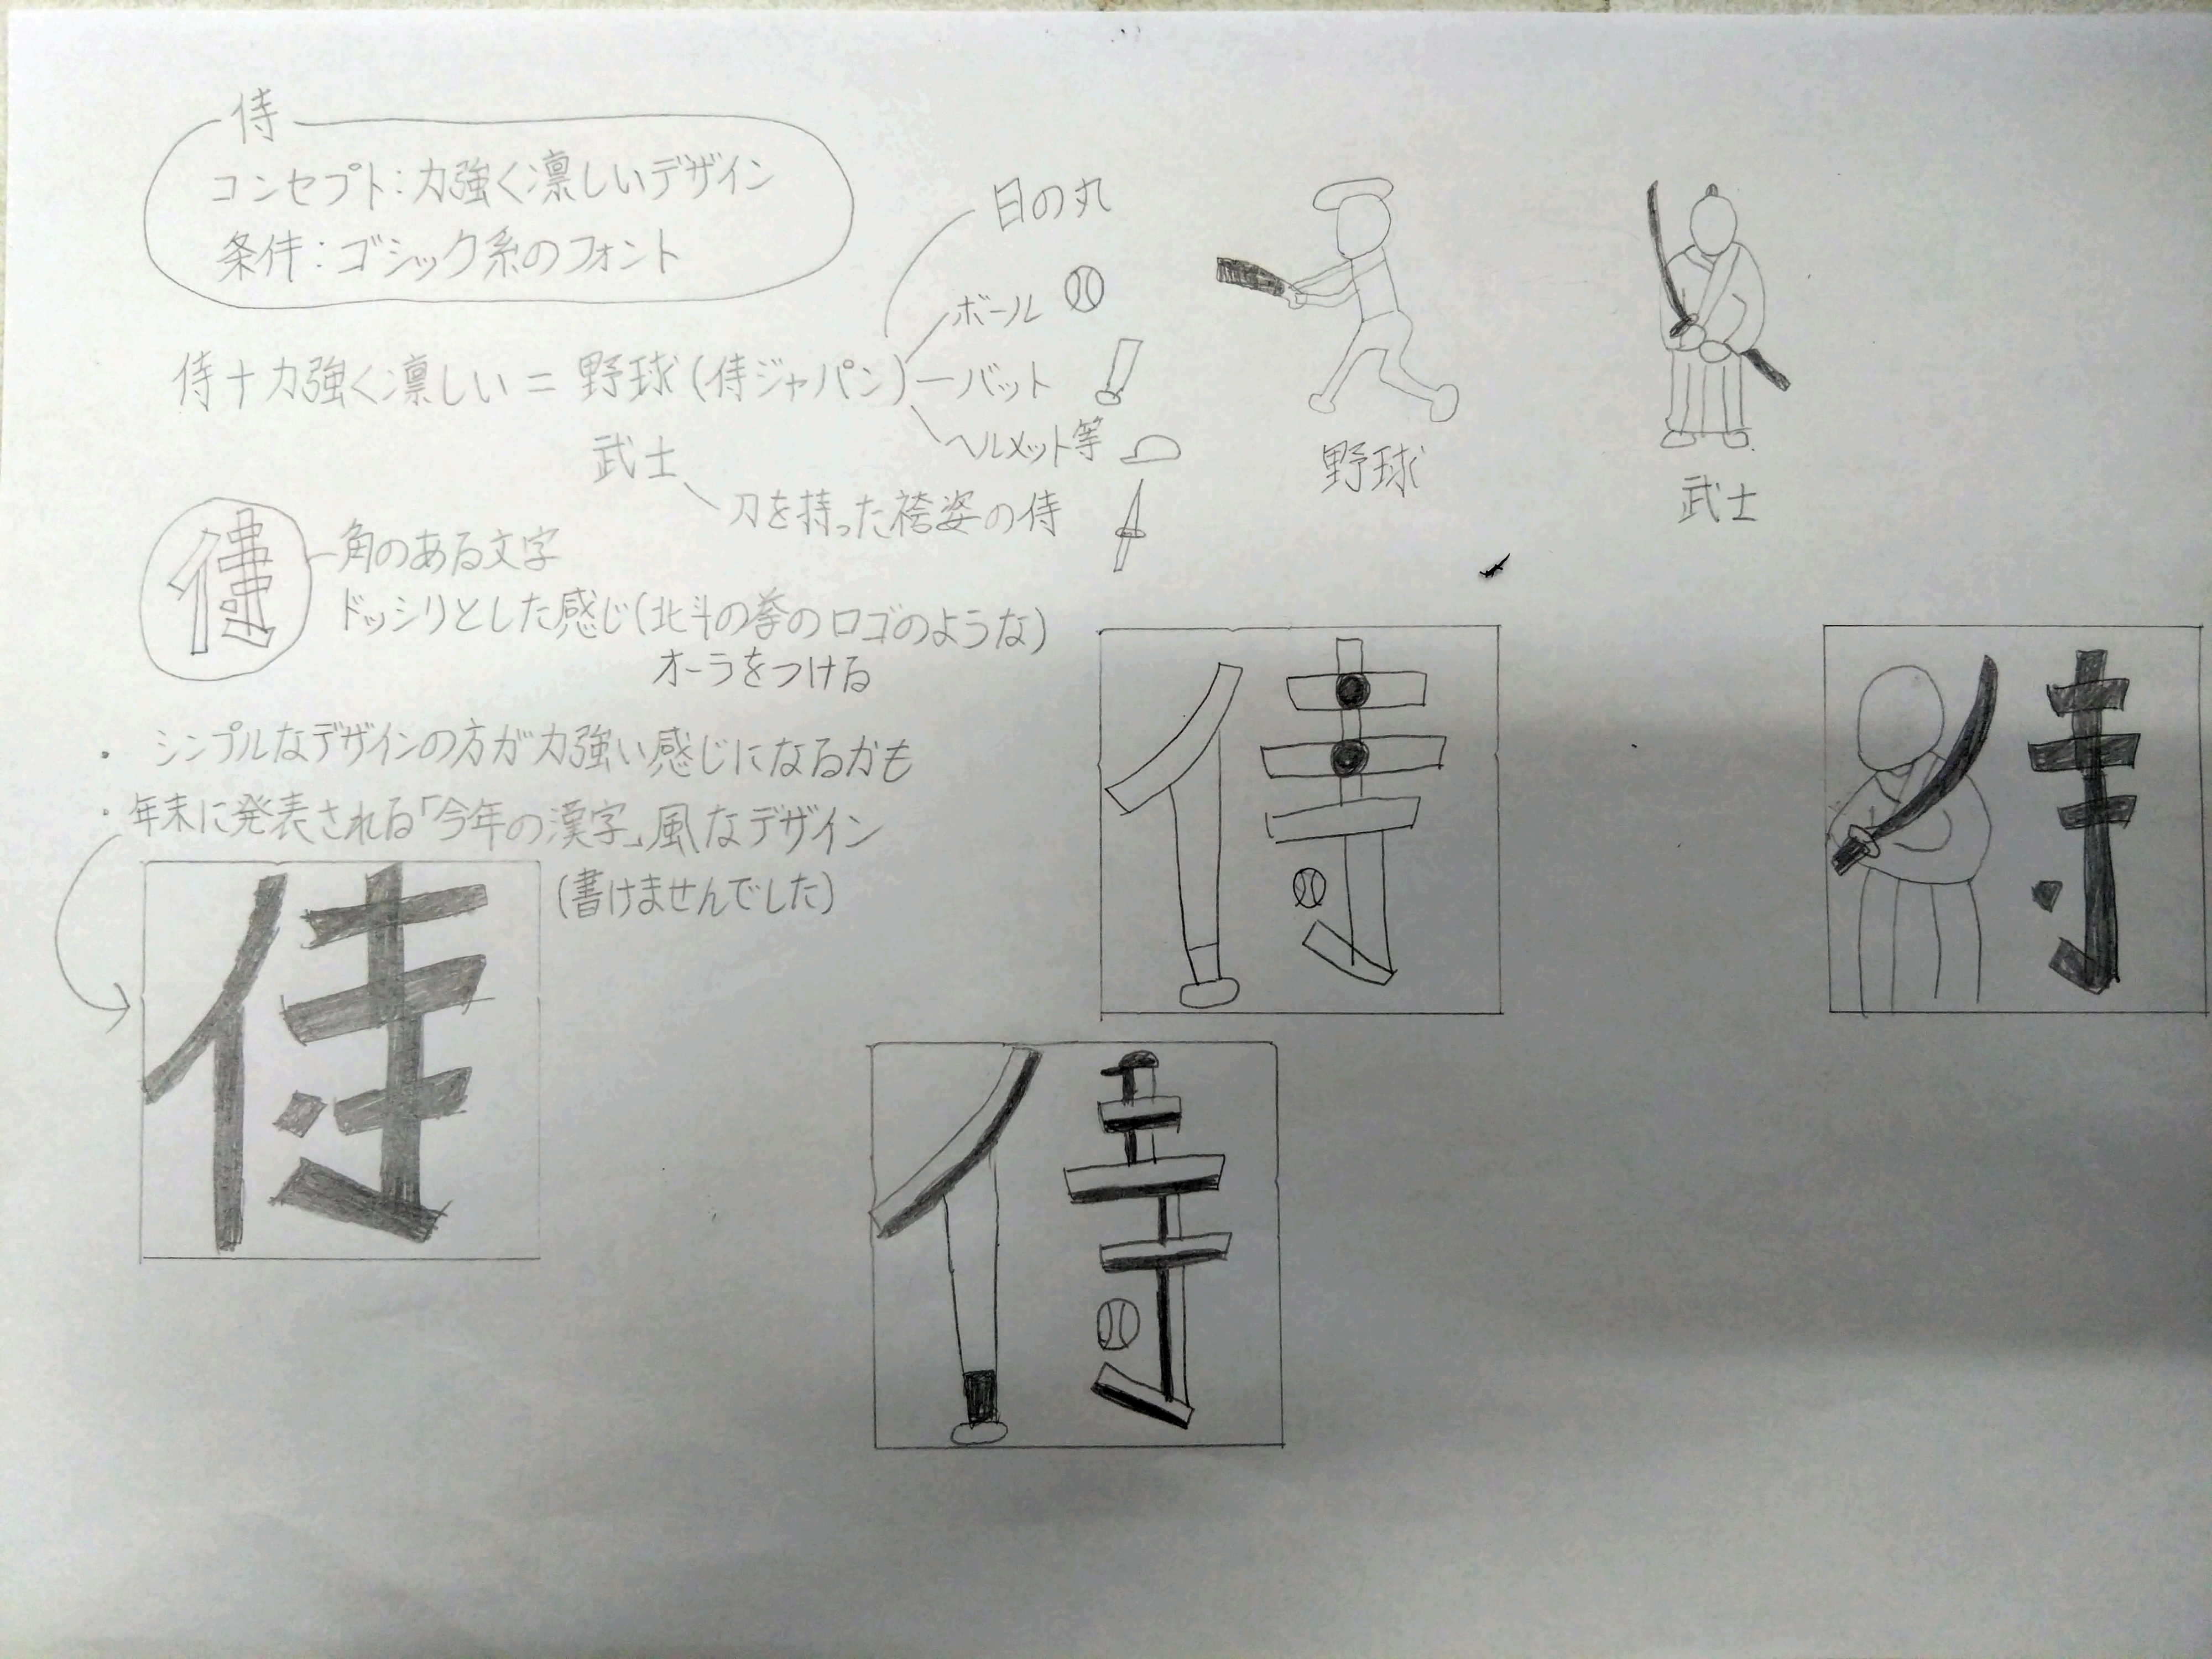 侍
コンセプト：力強く凛しいデザイン
条件：ゴシック系のフォント
日の丸
ボール
侍＋力強く凛しい＝野球(侍ジャパン)
バット
ヘルメット等
武士
刀を持った袴姿の侍
野球
武士
侍
角のある文字
ドッシリとした感じ(北斗の拳のロゴのような)
オーラをつける
・シンプルなデザインの方が力強い感じになるかも
・年末に発表される「今年の漢字」風なデザイン
(書けませんでした)
侍
侍
侍
寺